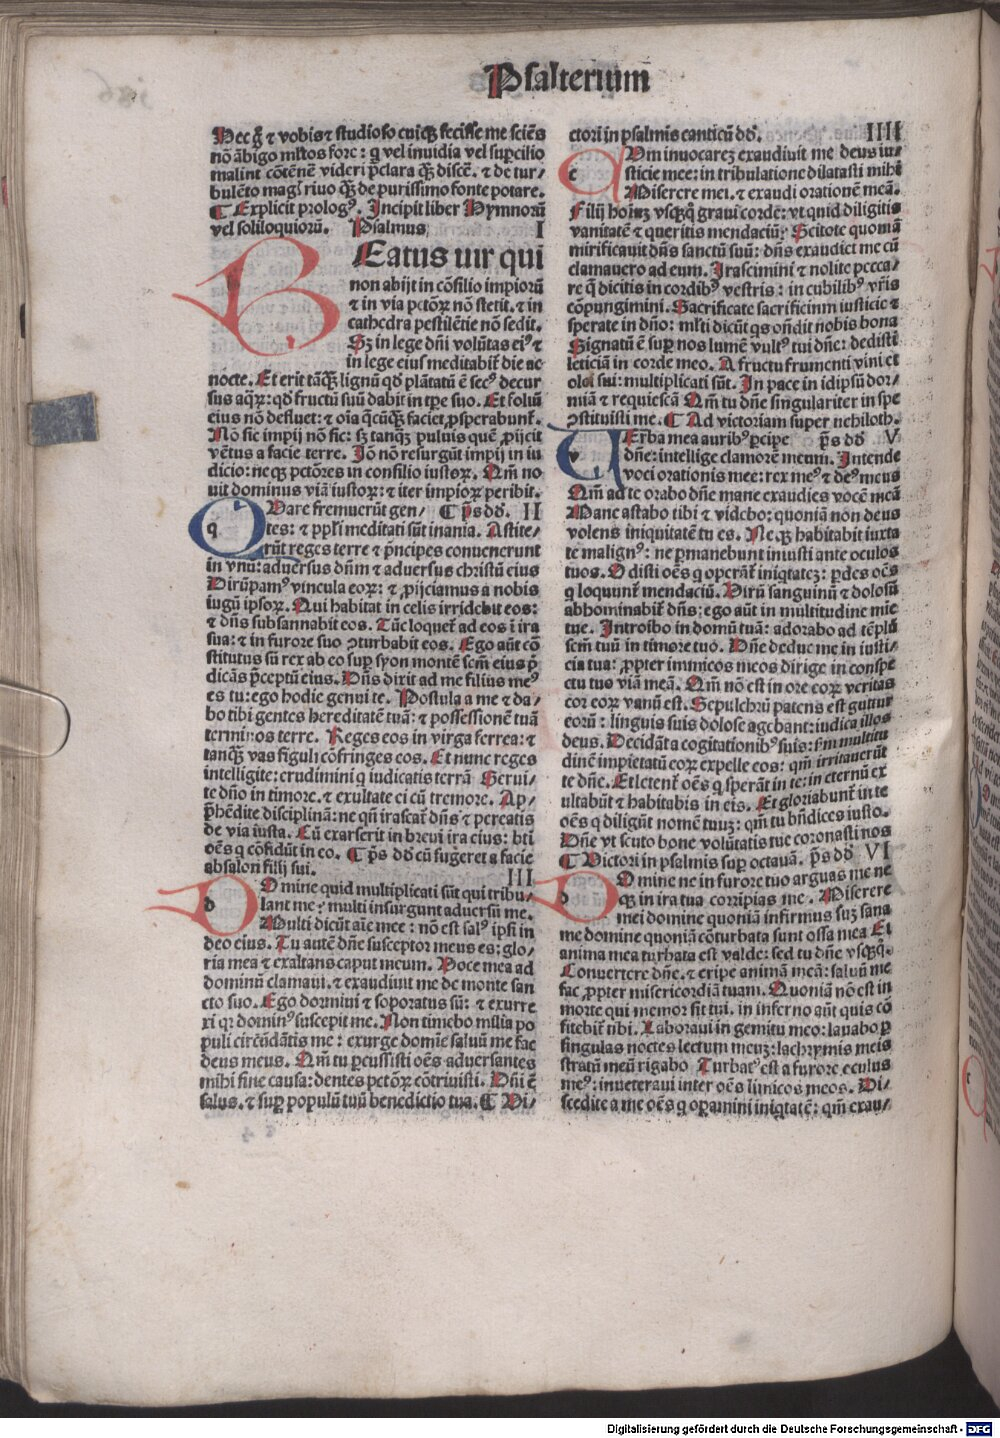 Psalterium
Hec gͦ ⁊ vobis ⁊ studioso cuiqȝ fecisse me sciēs
nō ābigo mltos fore: q vel inuidia vel supcilio
malint cōtēnē videri p̄clara qȝ discē. ⁊ de tur/
bulēto magꝭ riuo qȝ de purissimo fonte potare.
¶ Explicit prologꝰ. Incipit liber Hymnorū
vel soliloquiorū. Psalmus I
BEatus uir qui
non abijt in cōsilio impiorū
⁊ in via pctōꝝ nō stetit. ⁊ in
cathedra pestilētie nō sedit.
Sȝ in lege dn̄i volūtas eiꝰ ⁊
in lege eius meditabit̄ die ac
nocte. Et erit tāqȝ lignū qd plātatū ē secꝰ decur
sus aqꝝ: qd fructū suū dabit in tpe suo. Et foliū
eius nō defluet: ⁊ oīa qcūqȝ faciet ꝓsperabunt̄.
Nō sic impij nō sic: sȝ tanqȝ puluis quē ꝓijcit
vētus a facie terre. Iō nō resurgūt impij in iu
dicio: neqȝ pctōres in consilio iustoꝝ. Qm̄ no
uit dominus viā iustoꝝ: ⁊ iter impioꝝ peribit.
QUare fremuerūt gen/ ¶ p̄s dd. II
tes: ⁊ ppl̄i meditati sūt inania. Astite/
rūt reges terre ⁊ p̄ncipes conuenerunt
in vnū: aduersus dn̄m ⁊ aduersus christū eius
Dirūpamꝰ vincula eoꝝ: ⁊ ꝓijciamus a nobis
iugū ipsoꝝ. Qui habitat in celis irridebit eos:
⁊ dn̄s subsannabit eos. Tūc loquet̄ ad eos ī ira
sua: ⁊ in furore suo ꝯturbabit eos. Ego aūt cō
stitutus sū rex ab eo sup syon montē scm̄ eius p̄
dicās p̄ceptū eius. Dn̄s dixit ad me filius meꝰ
es tu: ego hodie genui te. Postula a me ⁊ da/
bo tibi gentes hereditatē tuā: ⁊ possessionē tuā
terminos terre. Reges eos in virga ferrea: ⁊
tanqȝ vas figuli cōfringes eos. Et nunc reges
intelligite: erudimini q iudicatis terrā Serui/
te dn̄o in timore. ⁊ exultate ei cū tremore. Ap/
p̄hēdite disciplinā: ne qn̄ irascat̄ dn̄s ⁊ pereatis
de via iusta. Cū exarserit in breui ira eius: bt̄i
oēs q cōfidūt in eo. ¶ p̄s dd cū fugeret a facie
absalon filij sui. III
DOmine quid multiplicati sūt qui tribu/
lant me: multi insurgunt aduersū me.
Multi dicūt aīe mee: nō est salꝰ ipsi in
deo eius. Tu autē dn̄e susceptor meus es: glo/
ria mea ⁊ exaltans caput meum. Voce mea ad
dominū clamaui. ⁊ exaudiuit me de monte san
cto suo. Ego dormiui ⁊ soporatus sū: ⁊ exurre
xi qꝛ dominꝰ suscepit me. Non timebo milia po
puli circūdātis me: exurge domīe saluū me fac
deus meus. Qm̄ tu pcussisti oēs aduersantes
mihi sine causa: dentes pctōꝝ cōtriuisti. Dn̄i ē
salus. ⁊ sup populū tuū benedictio tua. ¶ Vi/
ctori in psalmis canticū dd. IIII
CUm inuocarē exaudiuit me deus iu/
sticie mee: in tribulatione dilatasti mihi
Miserere mei. ⁊ exaudi orationē meā.
Filij hoīm vsqꝗ graui corde: vt quid diligitis
vanitatē ⁊ queritis mendaciū: Scitote quoniā
mirificauit dn̄s sanctū suū: dn̄s exaudiet me cū
clamauero ad eum. Irascimini ⁊ nolite pecca/
re q̄ dicitis in cordibꝰ vestris: in cubilibꝰ vr̄is
cōpungimini. Sacrificate sacrificium iusticie ⁊
sperate in dn̄o: ml̄ti dicūt qs on̄dit nobis bona
Signatū ē sup nos lumē vultꝰ tui dn̄e: dedisti
leticiā in corde meo. A fructu frumenti vini et
olei sui: multiplicati sūt. In pace in idipsū dor/
miā ⁊ requiescā Qm̄ tu dn̄e singulariter in spe
ꝯstituisti me. ¶ Ad victoriam super nehiloth.
VErba mea auribꝰ pcipe p̄s dd V
dn̄e: intellige clamorē meum. Intende
voci orationis mee: rex meꝰ ⁊ deꝰ meus
Qm̄ ad te orabo dn̄e mane exaudies vocē meā
Mane astabo tibi ⁊ videbo: quoniā non deus
volens iniquitatē tu es. Neqȝ habitabit iuxta
te malignꝰ: ne pmanebunt iniusti ante oculos
tuos. Odisti oēs q operāt̄ iniqtatē: pdes oēs
q loquunt̄ mendaciū. Virū sanguinū ⁊ dolosū
abhominabit̄ dn̄s: ego aūt in multitudine mīe
tue. Introibo in domū tuā: adorabo ad tēplū
scm̄ tuū in timore tuo. Dn̄e deduc me in iusti/
cia tua: ꝓpter inimicos meos dirige in conspe
ctu tuo viā meā. Qm̄ nō est in ore eoꝝ veritas
cor eoꝝ vanū est. Sepulchrū patens est guttur
eorū: linguis suis dolose agebant: iudica illos
deus. Decidāt a cogitationibꝰ suis: sm̄ multitu
dinē impietatū eoꝝ expelle eos: qm̄ irritauerūt
te dn̄e. Et letent̄ oēs q sperāt in te: in eternū ex
ultabūt ⁊ habitabis in eis. Et gloriabunt̄ in te
oēs q diligūt nomē tuū: qm̄ tu bn̄dices iusto.
Dn̄e vt scuto bone volūtatis tue coronasti nos
¶ Victori in psalmis sup octauā. p̄s dd VI
DOmine ne in furore tuo arguas me ne
qȝ in ira tua corripias me. Miserere
mei domine quoniā infirmus suȝ sana
me domine quoniā cōturbata sunt ossa mea Et
anima mea turbata est valde: sed tu dn̄e vsqꝗ.
Conuertere dn̄e. ⁊ eripe animā meā: saluū me
fac ꝓpter misericordiā tuam. Quoniā nō est in
morte qui memor sit tui. in inferno aūt quis cō
fitebit̄ tibi. Laboraui in gemitu meo: lauabo p
singulas noctes lectum meū: lachrymis meis
stratū meū rigabo Turbatꝰ est a furore oculus
meꝰ: inueteraui inter oēs inimicos meos. Di/
scedite a me oēs q opamini iniqtatē: qm̄ exau/
Digitalisierung gefördert durch die Deutsche Forschungsgemeinschaft - DFG